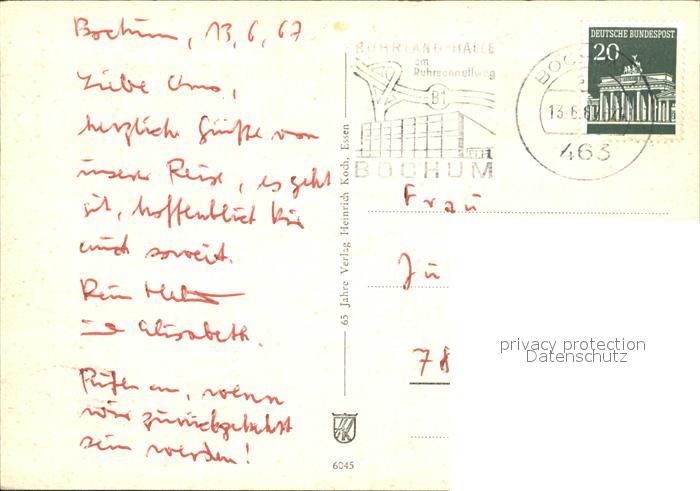 Bochum, 13.6.67
Liebe Oma,
herzliche Grüße von
unserer Reise, es geht
gut, hoffentlich bei
auch soweit.
Dein
und Elisabeth.
Rufen an, wenn
wir zurückgekehrt
sein werden!
65 Jahre Verlag Heinrich Koch, Essen
6045
RUHRLAND-HALLE
am
Ruhrschnellweg
B1
BOCHUM
BOCHUM
13.6.67
463
DEUTSCHE BUNDESPOST
20
Frau
78
privacy protection
Datenschutz